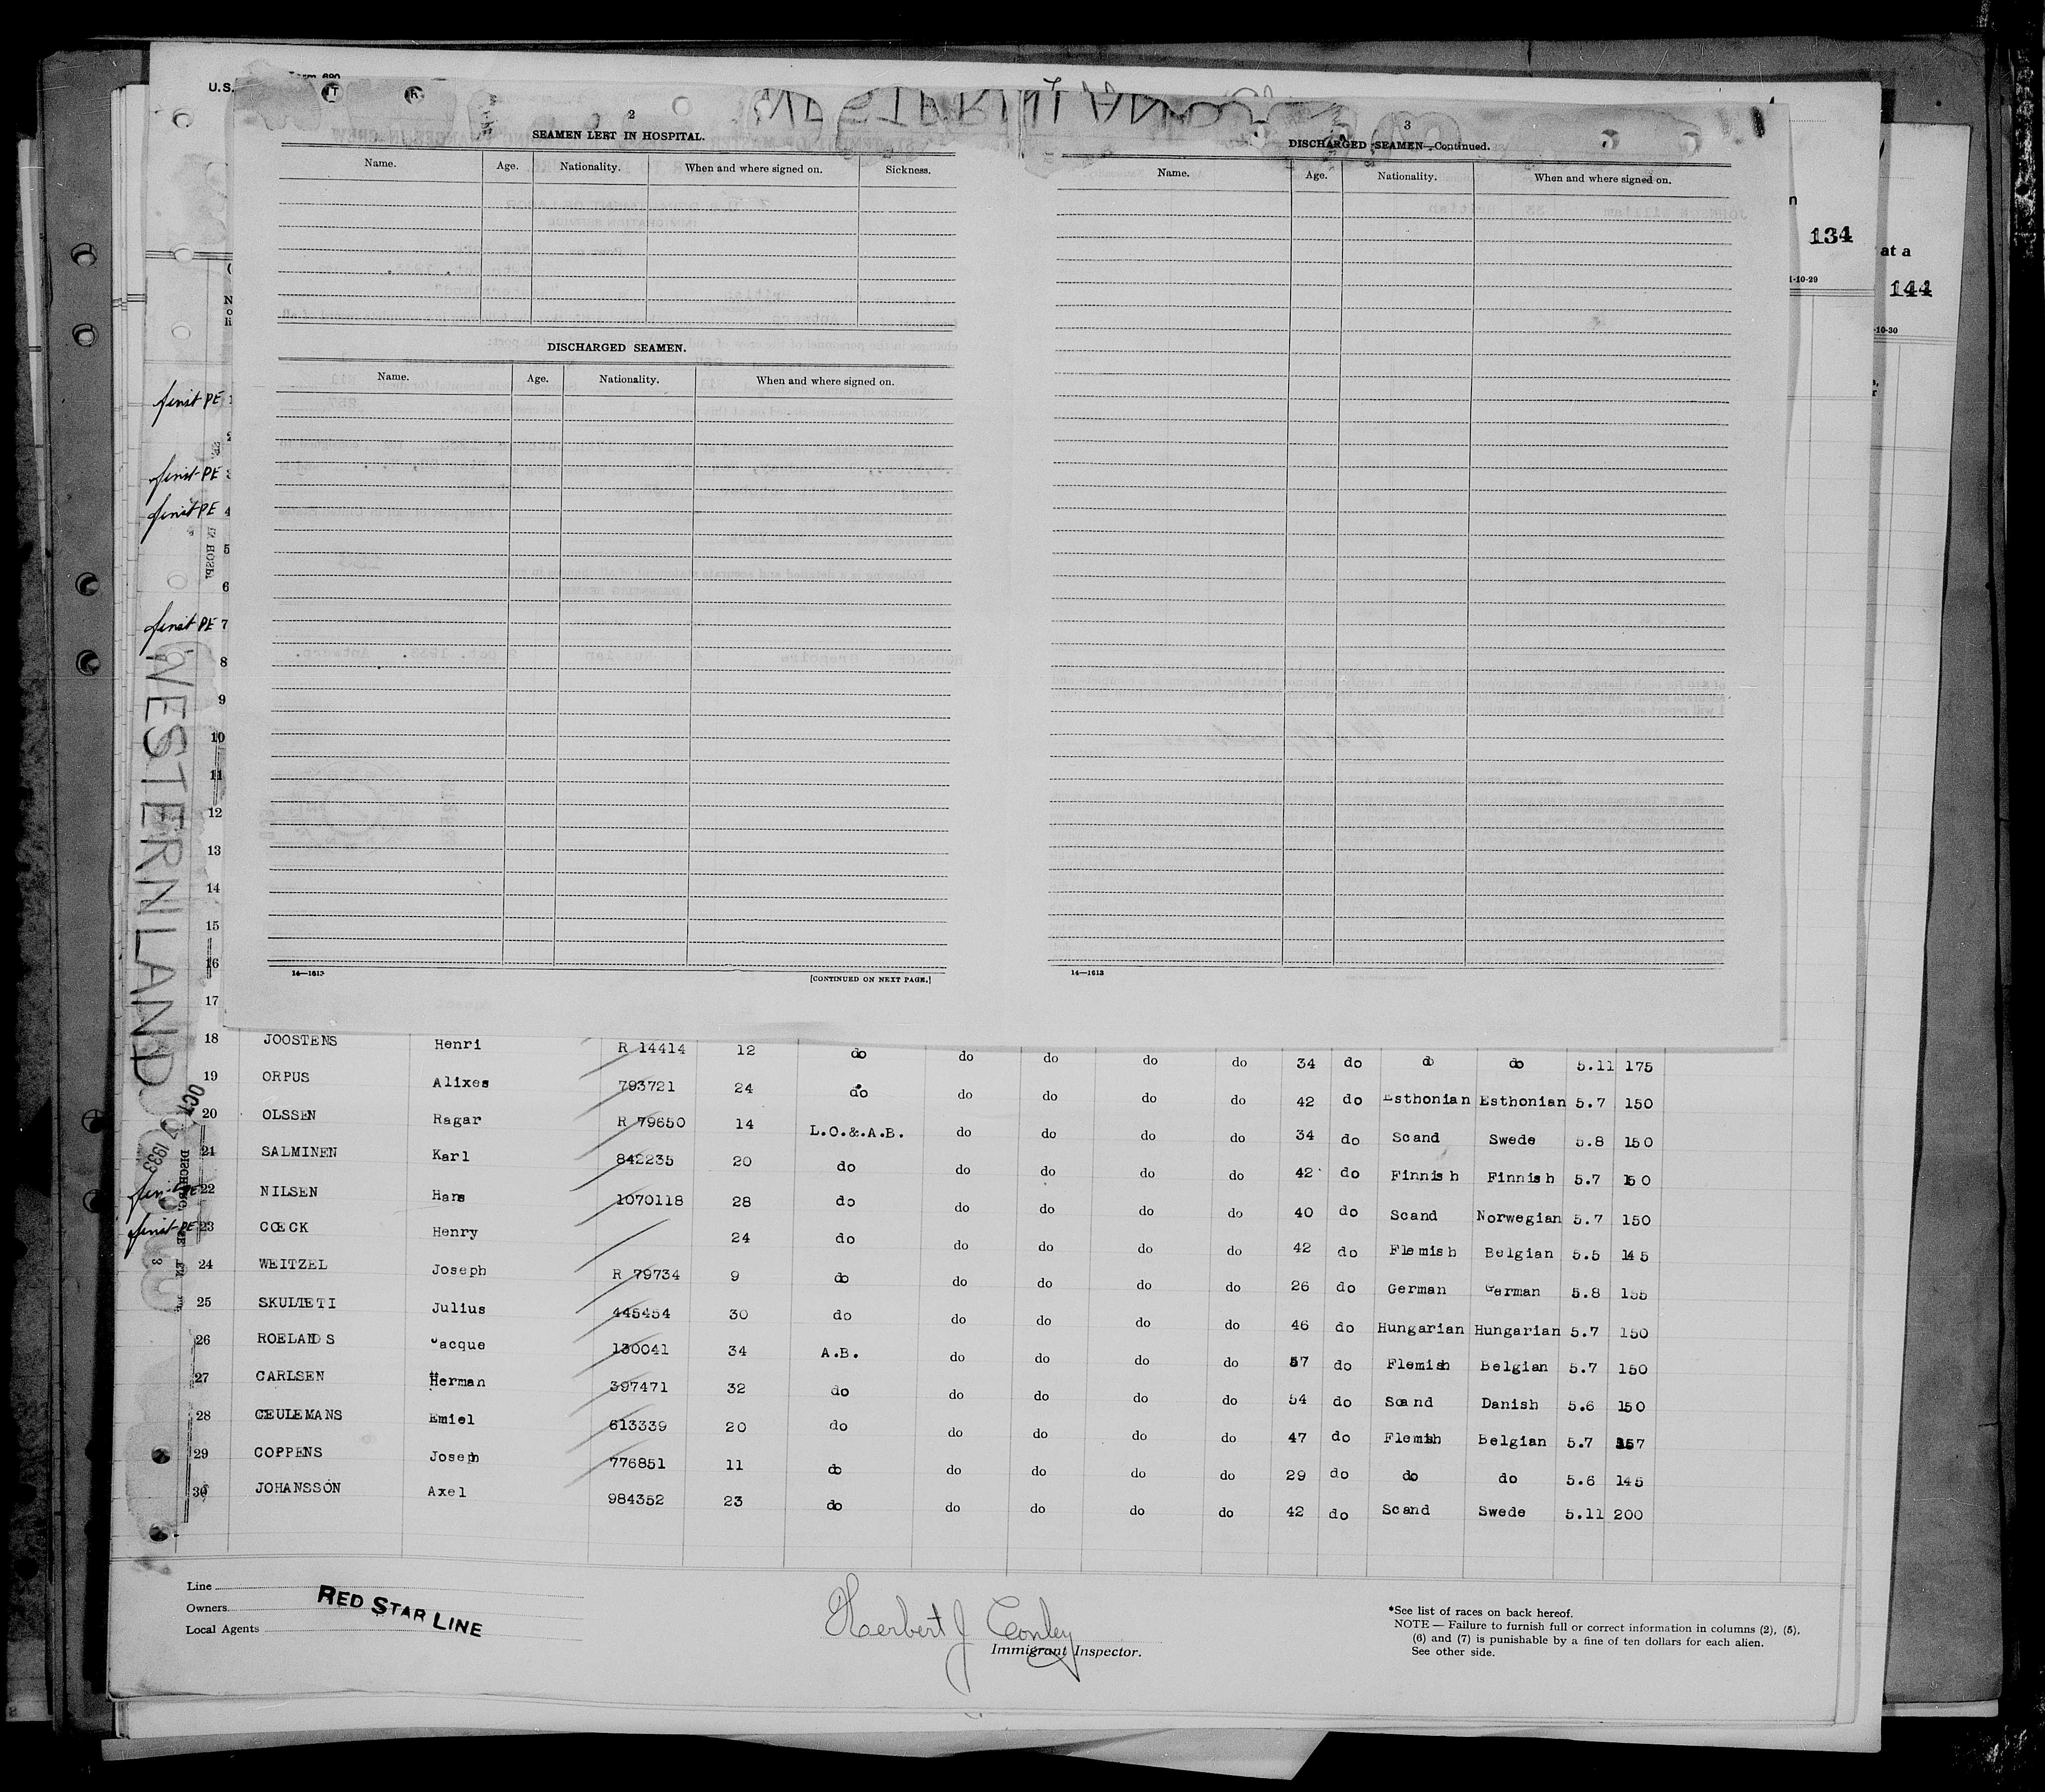 U.S.
134
at a
1-10-29
144
-10-30
2
SEAMEN LEFT IN HOSPITAL.
Name. Age. Nationality. When and where signed on. Sickness.
DISCHARGED SEAMEN.
Name. Age. Nationality. When and where signed on.
14—1613
[CONTINUED ON NEXT PAGE.]
3
DISCHARGED SEAMEN—Continued.
Name. Age. Nationality. When and where signed on.
14—1613
WESTERNLAND
OCT 1933
first PE
first PE
first PE 4
5
6
first PE 7
8
9
10
11
12
13
14
15
16
17
18 JOOSTENS Henri R 14414 12 do do do do do 34 do do do 5.11 175
19 ORPUS Alixes 793721 24 do do do do do 42 do Esthonian Esthonian 5.7 150
20 OLSSEN Ragar R 79650 14 L.O.&.A.B. do do do do 34 do Scand Swede 5.8 150
21 SALMINEN Karl 842235 20 do do do do do 42 do Finnish Finnish 5.7 150
first PE 22 NILSEN Hans 1070118 28 do do do do do 40 do Scand Norwegian 5.7 150
first PE 23 COECK Henry 24 do do do do do 42 do Flemish Belgian 5.5 145
24 WEITZEL Joseph R 79734 9 do do do do do 26 do German German 5.8 155
25 SKULTETI Julius 445454 30 do do do do do 46 do Hungarian Hungarian 5.7 150
26 ROELANDS Jacque 130041 34 A.B. do do do do 57 do Flemish Belgian 5.7 150
27 CARLSEN Herman 397471 32 do do do do do 54 do Scand Danish 5.6 150
28 CEULEMANS Emiel 613339 20 do do do do do 47 do Flemish Belgian 5.7 157
29 COPPENS Joseph 776851 11 do do do do do 29 do do do 5.6 145
30 JOHANSSON Axel 984352 23 do do do do do 42 do Scand Swede 5.11 200
Line
Owners
Local Agents
RED STAR LINE
Herbert J Conley
Immigrant Inspector.
*See list of races on back hereof.
NOTE — Failure to furnish full or correct information in columns (2), (5),
(6) and (7) is punishable by a fine of ten dollars for each alien.
See other side.